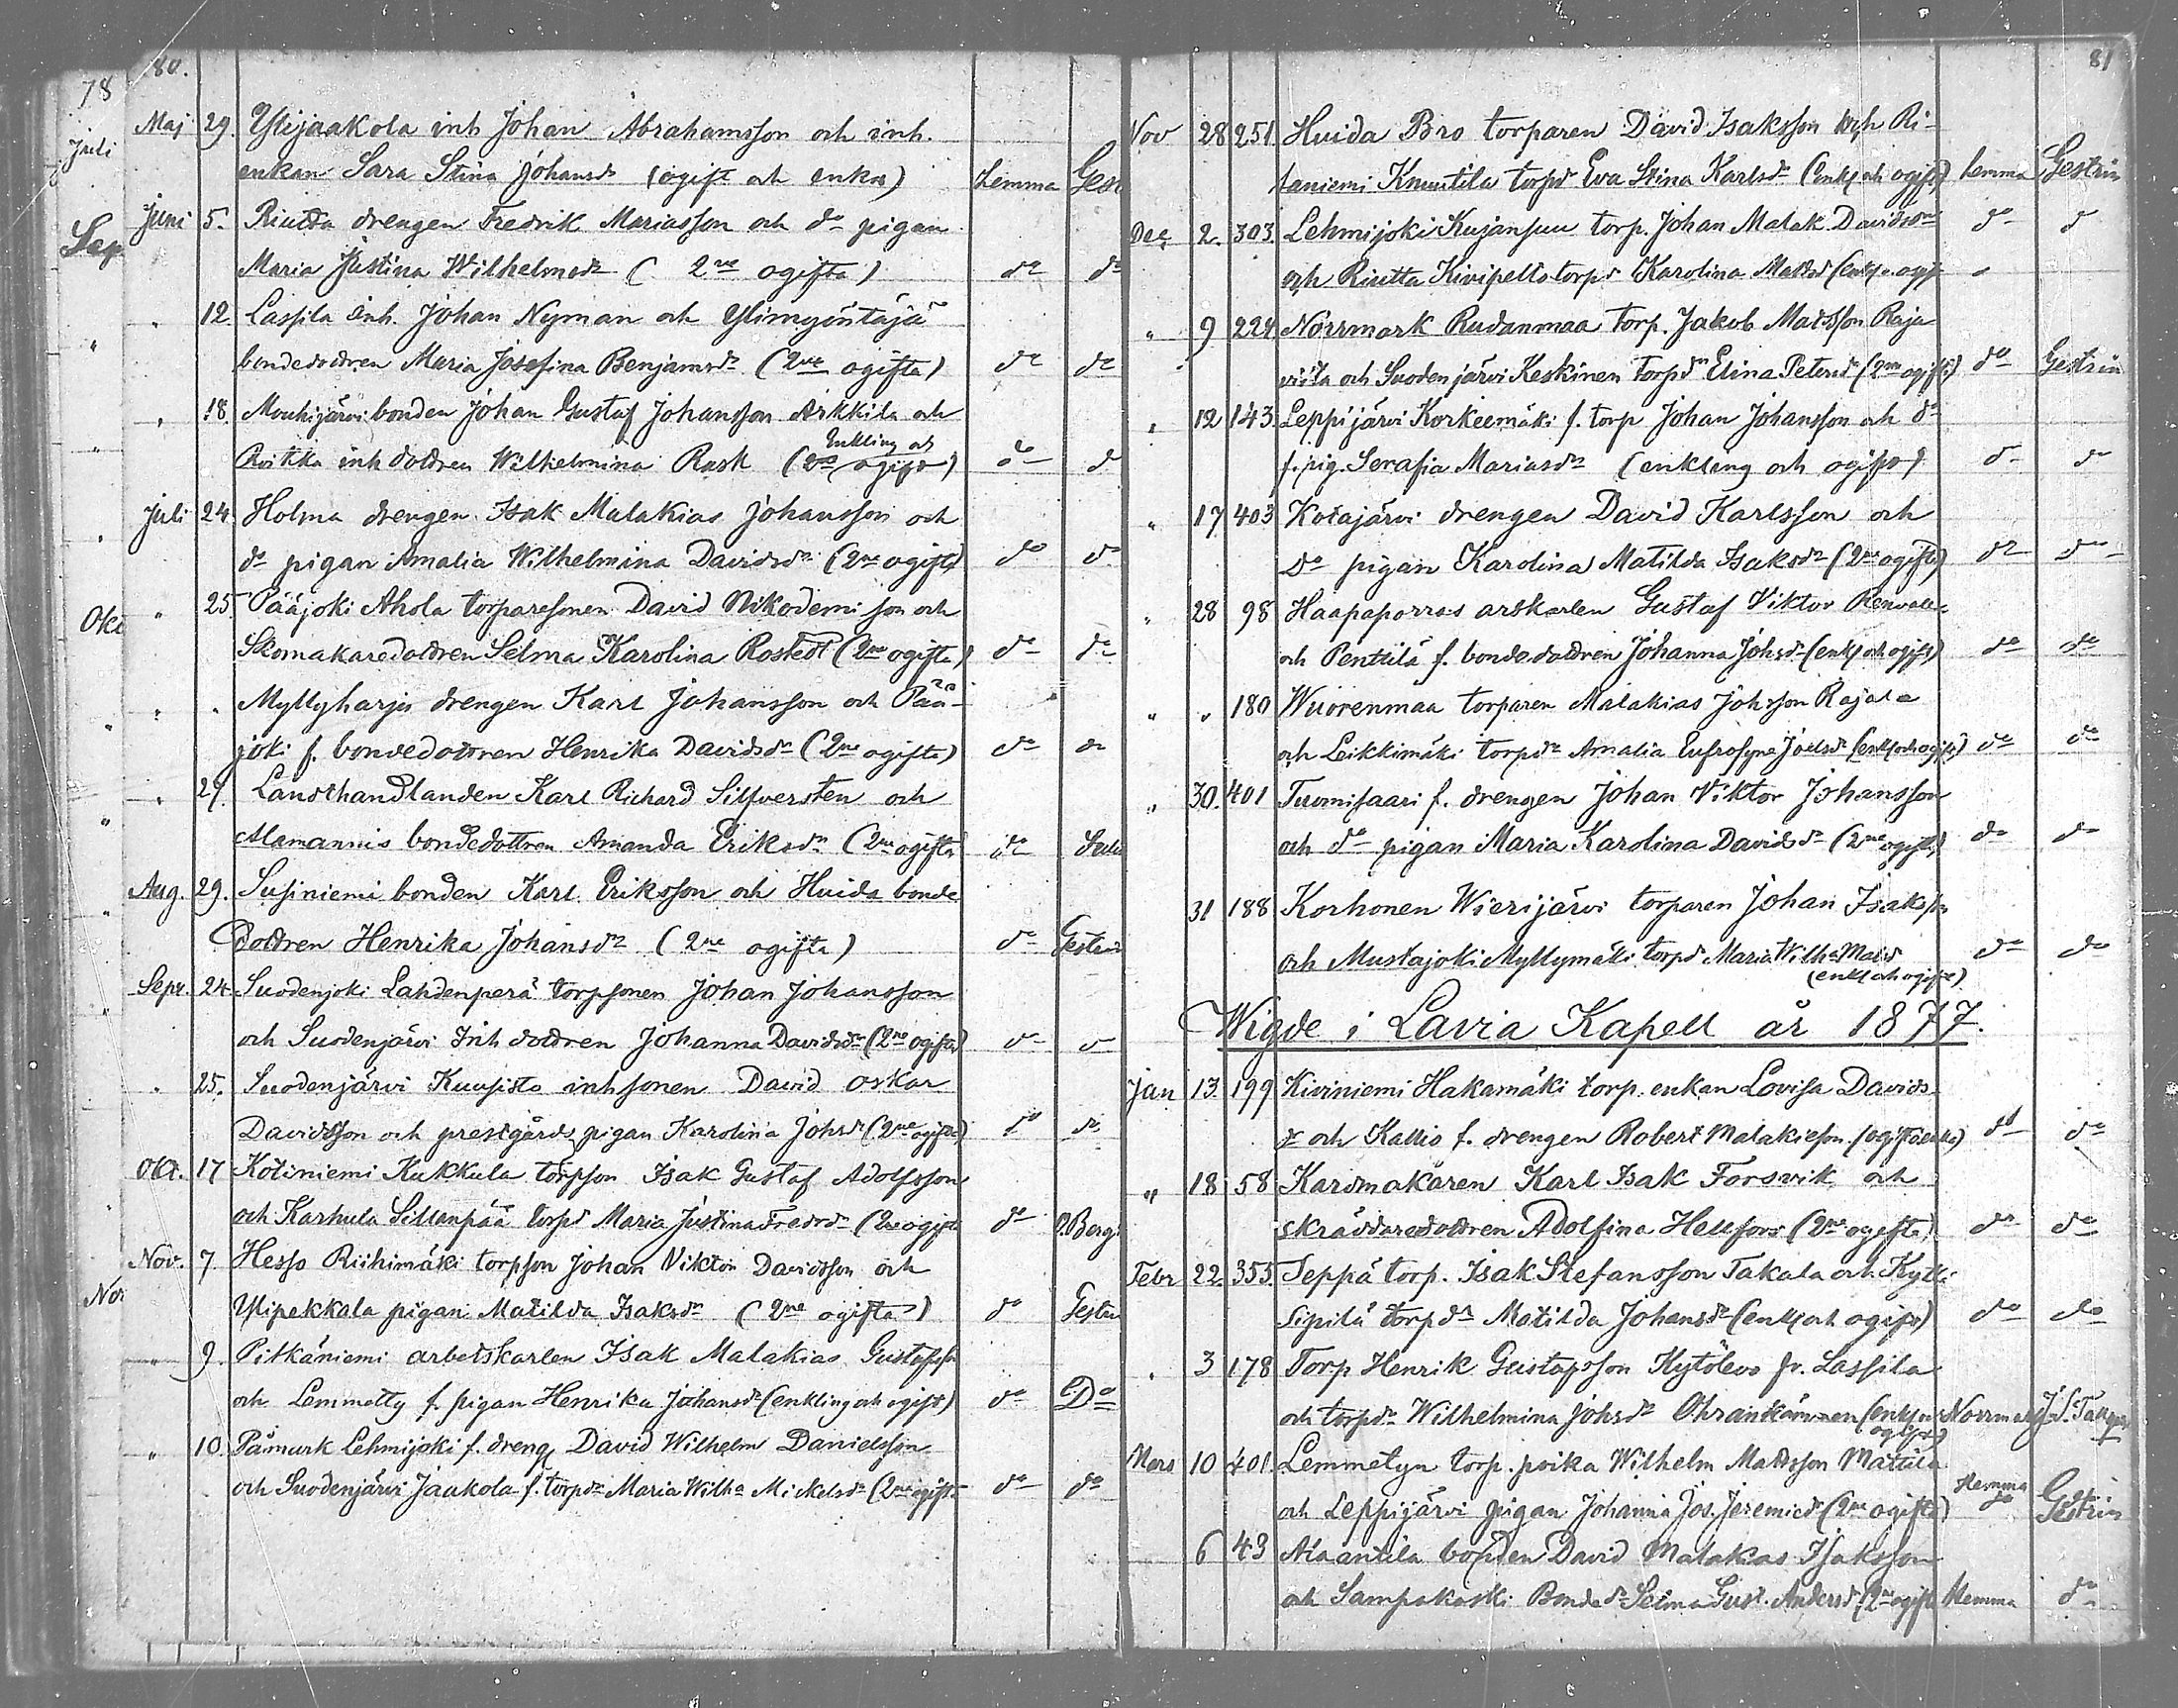 80.
Maj 29. Ylijaakola inh Johan Abrahamsson och inh.
enkan Sara Stina Johansdr (ogift och enka) Hemma Gest
Juni 5. Riutta drengen Fredrik Mariasson och do pigan
Maria Justina Wilhelmsdr (2ne ogifta) do do
" 12. Lassila inh. Johan Nyman och Ylimyöntäjä
bondedottren Maria Josefina Benjamsdr (2ne ogifta) do do
" 18. Mouhijärvi bonden Johan Gustaf Johansson Arkkila och
Enkling och
Roikka inh dottren Wilhelmina Rask (2ne ogift) do d
Juli 24. Holma drengen Isak Malakias Johansson och
do pigan Amalia Wilhelmina Davidsdr (2ne ogifta) do do
" 25. Pääjoki Ahola torparesonen David Nikodemison och
Skomakaredottren Selma Karolina Rostedt (2ne ogifta) do do
" " Myllyharju drengen Karl Johansson och Pää-
joki f. bondedottren Henrika Davidsdr (2ne ogifta) do do
" 29. Landthandlanden Karl Richard Silfversten och
Alamannis bondedottren Amanda Eriksdr (2ne ogifta) do
Aug. 29. Susiniemi bonden Karl Eriksson och Huida bonde
dottren Henrika Johansdr (2ne ogifta) do Gestrin
Sept. 24. Suodenjoki Lahdenperä torpsonen Johan Johansson
och Suodenjärvi Inh dottren Johanna Davidsdr (2ne ogifta) do do
" 25. Suodenjärvi Kuusisto inhsonen David Oskar
Davidsson och prestgårds pigan Karolina Johsdr (2ne ogifta) do do
Okt. 17 Kotiniemi Kukkula torpson Isak Gustaf Adolfsson
och Karhula Sillanpää torpd Maria Justina Fredrdr (2ne ogifta do O. Berg
Nov. 7. Hesso Riihimäki torpson Johan Viktor Davidsson och
Ylipekkala pigan Matilda Isaksdr (2ne ogifta) do Gestri
" 9. Pitkäniemi arbetskarlen Isak Malakias Gustafsson
och Lemmetty f. pigan Henrika Johansdr (enkling och ogift) do Do
" 10. Påmark Lehmijoki f. dreng David Wilhelm Danielsson
och Suodenjärvi Jaakola f. torpdr Maria Wilha Mickelsdr (2ne ogifta do do
78
Juli
Sep
Okt
Nov
81
Nov 28 251 Huida Bro torparen David Isaksson och Ri-
taniemi Knuutila torpd Eva Stina Karlsdr (enkl och ogift) hemma Gestrin
Dec 2. 303. Lehmijoki Kujansuu torp. Johan Malak. Davidsson do d
och Riutta Kivipelto torpd Karolina Mattsd (enkl o. ogift "
" 9 224 Norrmark Rudanmaa torp. Jakob Matsson Raja
viita och Suodenjärvi Keskinen torpdr Elina Petersdr (2ne ogifta) do Gestrin
" 12 143. Leppijärvi Korkeemäki f. torp Johan Johansson och do
f. pig. Serafia Mariasdr (enkling och ogift) do do
" 17 403 Kotajärvi drengen David Karlsson och
Do pigan Karolina Matilda Isaksdr (2ne ogifta) do do
" 28 98 Haapaporras arbskarlen Gustaf Viktor Renvall
och Penttilä f. bondedottren Johanna Johsdr (enkl och ogift) do do
" " 180 Wuorenmaa torparen Malakias Johsson Rajala
och Leikkimäki torpdr Amalia Eufrosyne Joelsdr (enkl och ogift) do do
" 30. 401 Tuomisaari f. drengen Johan Viktor Johansson
och do pigan Maria Karolina Davidsdr (2ne ogifta) do do
31 188 Korhonen Wierijärvi torparen Johan Isaksson
och Mustajoki Myllymäki torpd Maria Wilha Matsd do do
(enkl och ogift)
Wigde i Lavia Kapell år 1877.
Jan 13. 199 Kiviniemi Hakamäki torp. enkan Lovisa Davids-
dr och Kallio f. drengen Robert Malakieson (ogift o enka) do do
" 18 58 Karsmakaren Karl Isak Forsvik och
skräddaredottren Adolfina Hellfors (2ne ogifta) do do
Febr 22. 353 Seppä torp. Isak Stefansson Takala och Kytti
Sipilä torpdr Matilda Johansdr (enkl och ogift) do do
" 3 178 Torp Henrik Gustafsson Kytölevo fr. Lassila
och torpdr Wilhelmina Johsdr (enkl och Norrmark
ogift)
Mars 10 401. Lemmetyn torp. poika Wilhelm Mattsson Mattila
och Leppijärvi pigan Johanna Jos. Jeremiedr (2ne ogifta) Hemma do Gestrin
6 43 Alaantila bonden David Malakias Isaksson
och Sampakoski Bonded Selma Gust. Andersdr (2ne ogift Hemma do